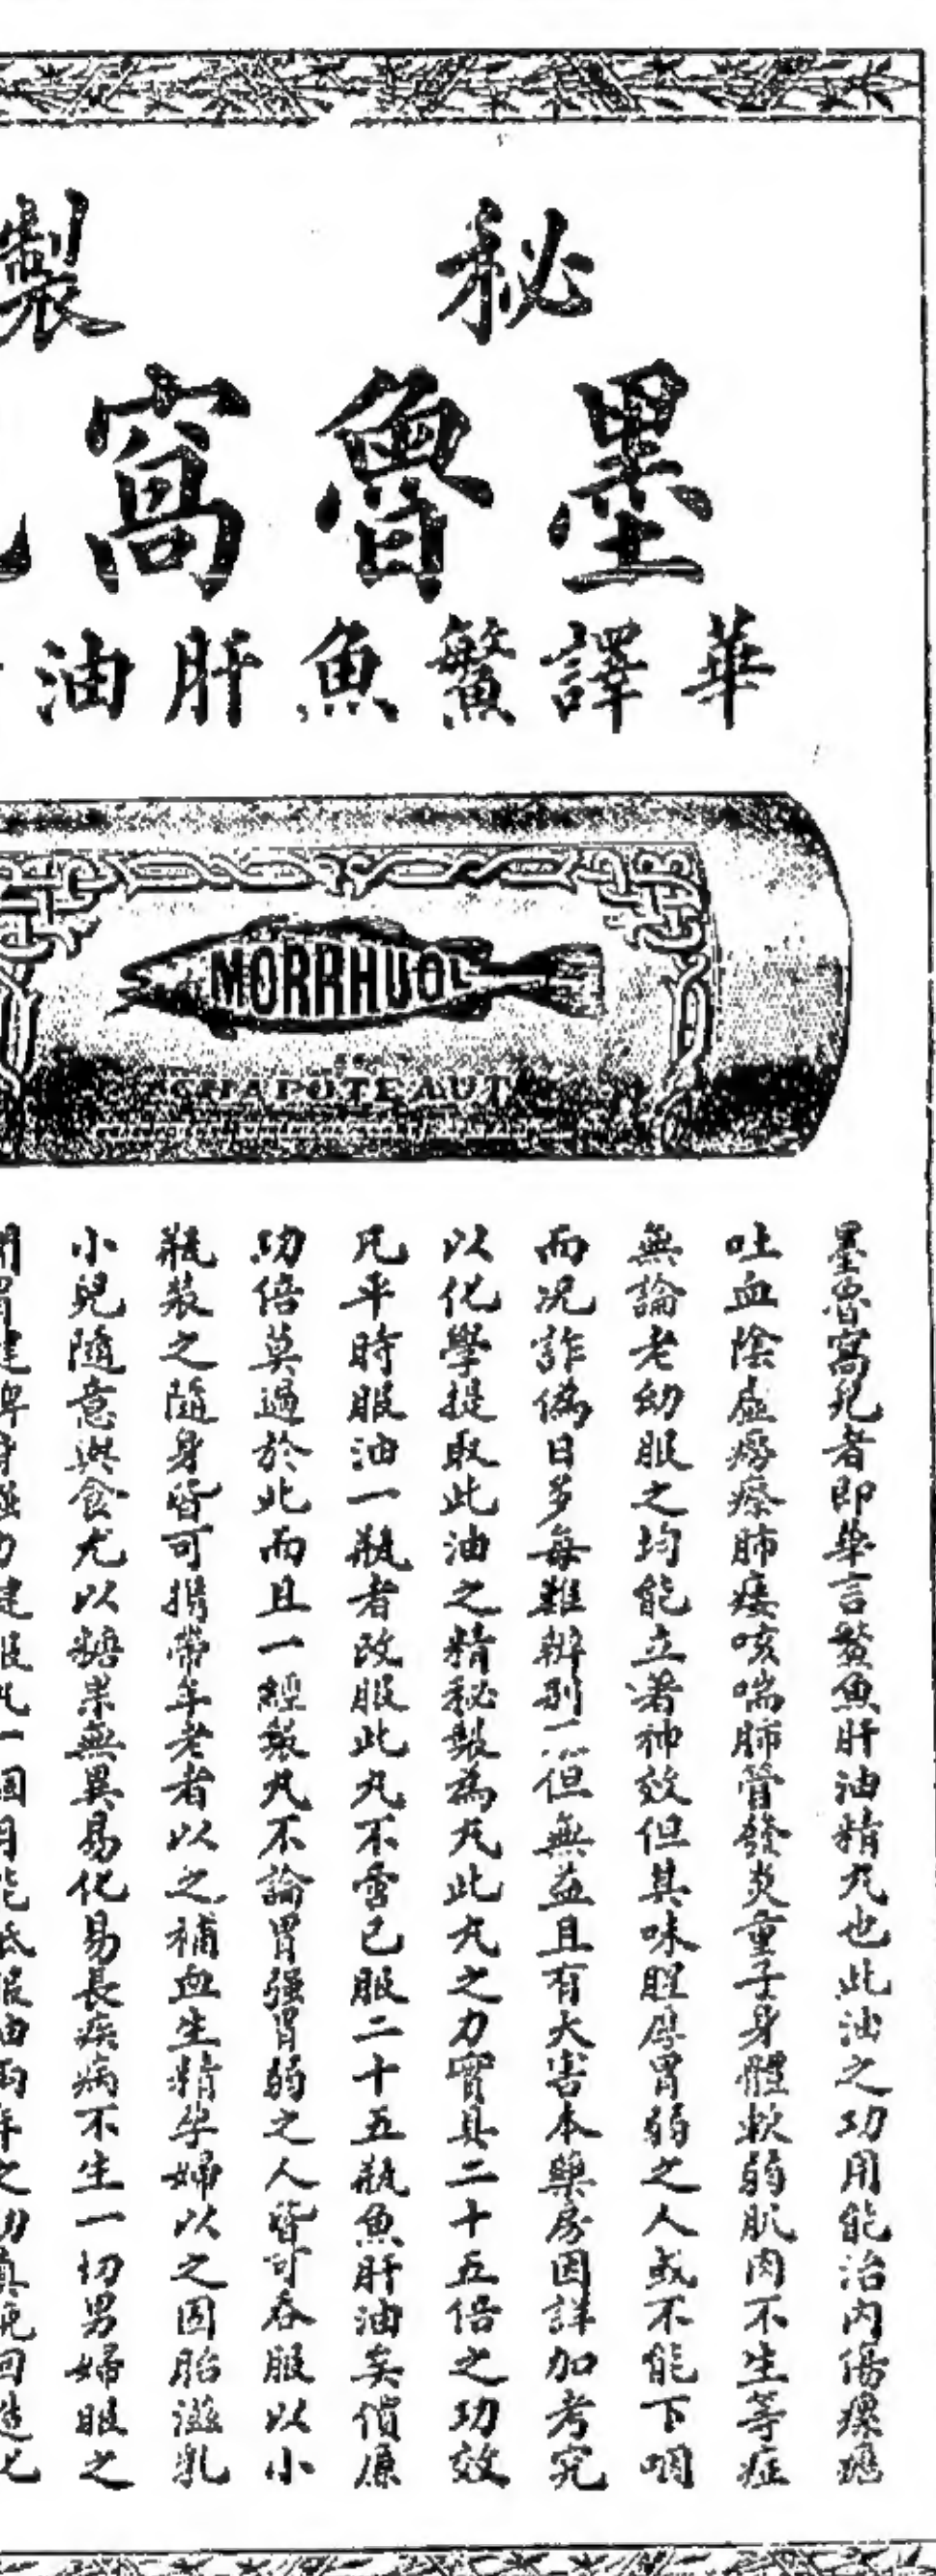 秘製
墨魯窩
華譯鱉魚肝油
MORRHUOL
CHAPOTEAUT
墨魯窩丸者即華言鱉魚肝油精丸也此油之功用能治內傷瘰癧
吐血陰虛癆瘵肺痿咳喘肺管發炎童子身體軟弱肌肉不生等症
無論老幼服之均能立著神效但其味腥厚胃弱之人或不能下咽
而况詐偽日多每難辨別不但無益且有大害本藥房因詳加考究
以化學提取此油之精秘製為丸此丸之力實具二十五倍之功效
凡平時服油一瓶者改服此丸不啻已服二十五瓶魚肝油矣價廉
功倍莫過於此而且一經製丸不論胃强胃弱之人皆可吞服以小
瓶裝之隨身皆可携帶年老者以之補血生精孕婦以之固胎滋乳
小兒隨意與食尤以糖果無異易化易長疾病不生一切男婦服之